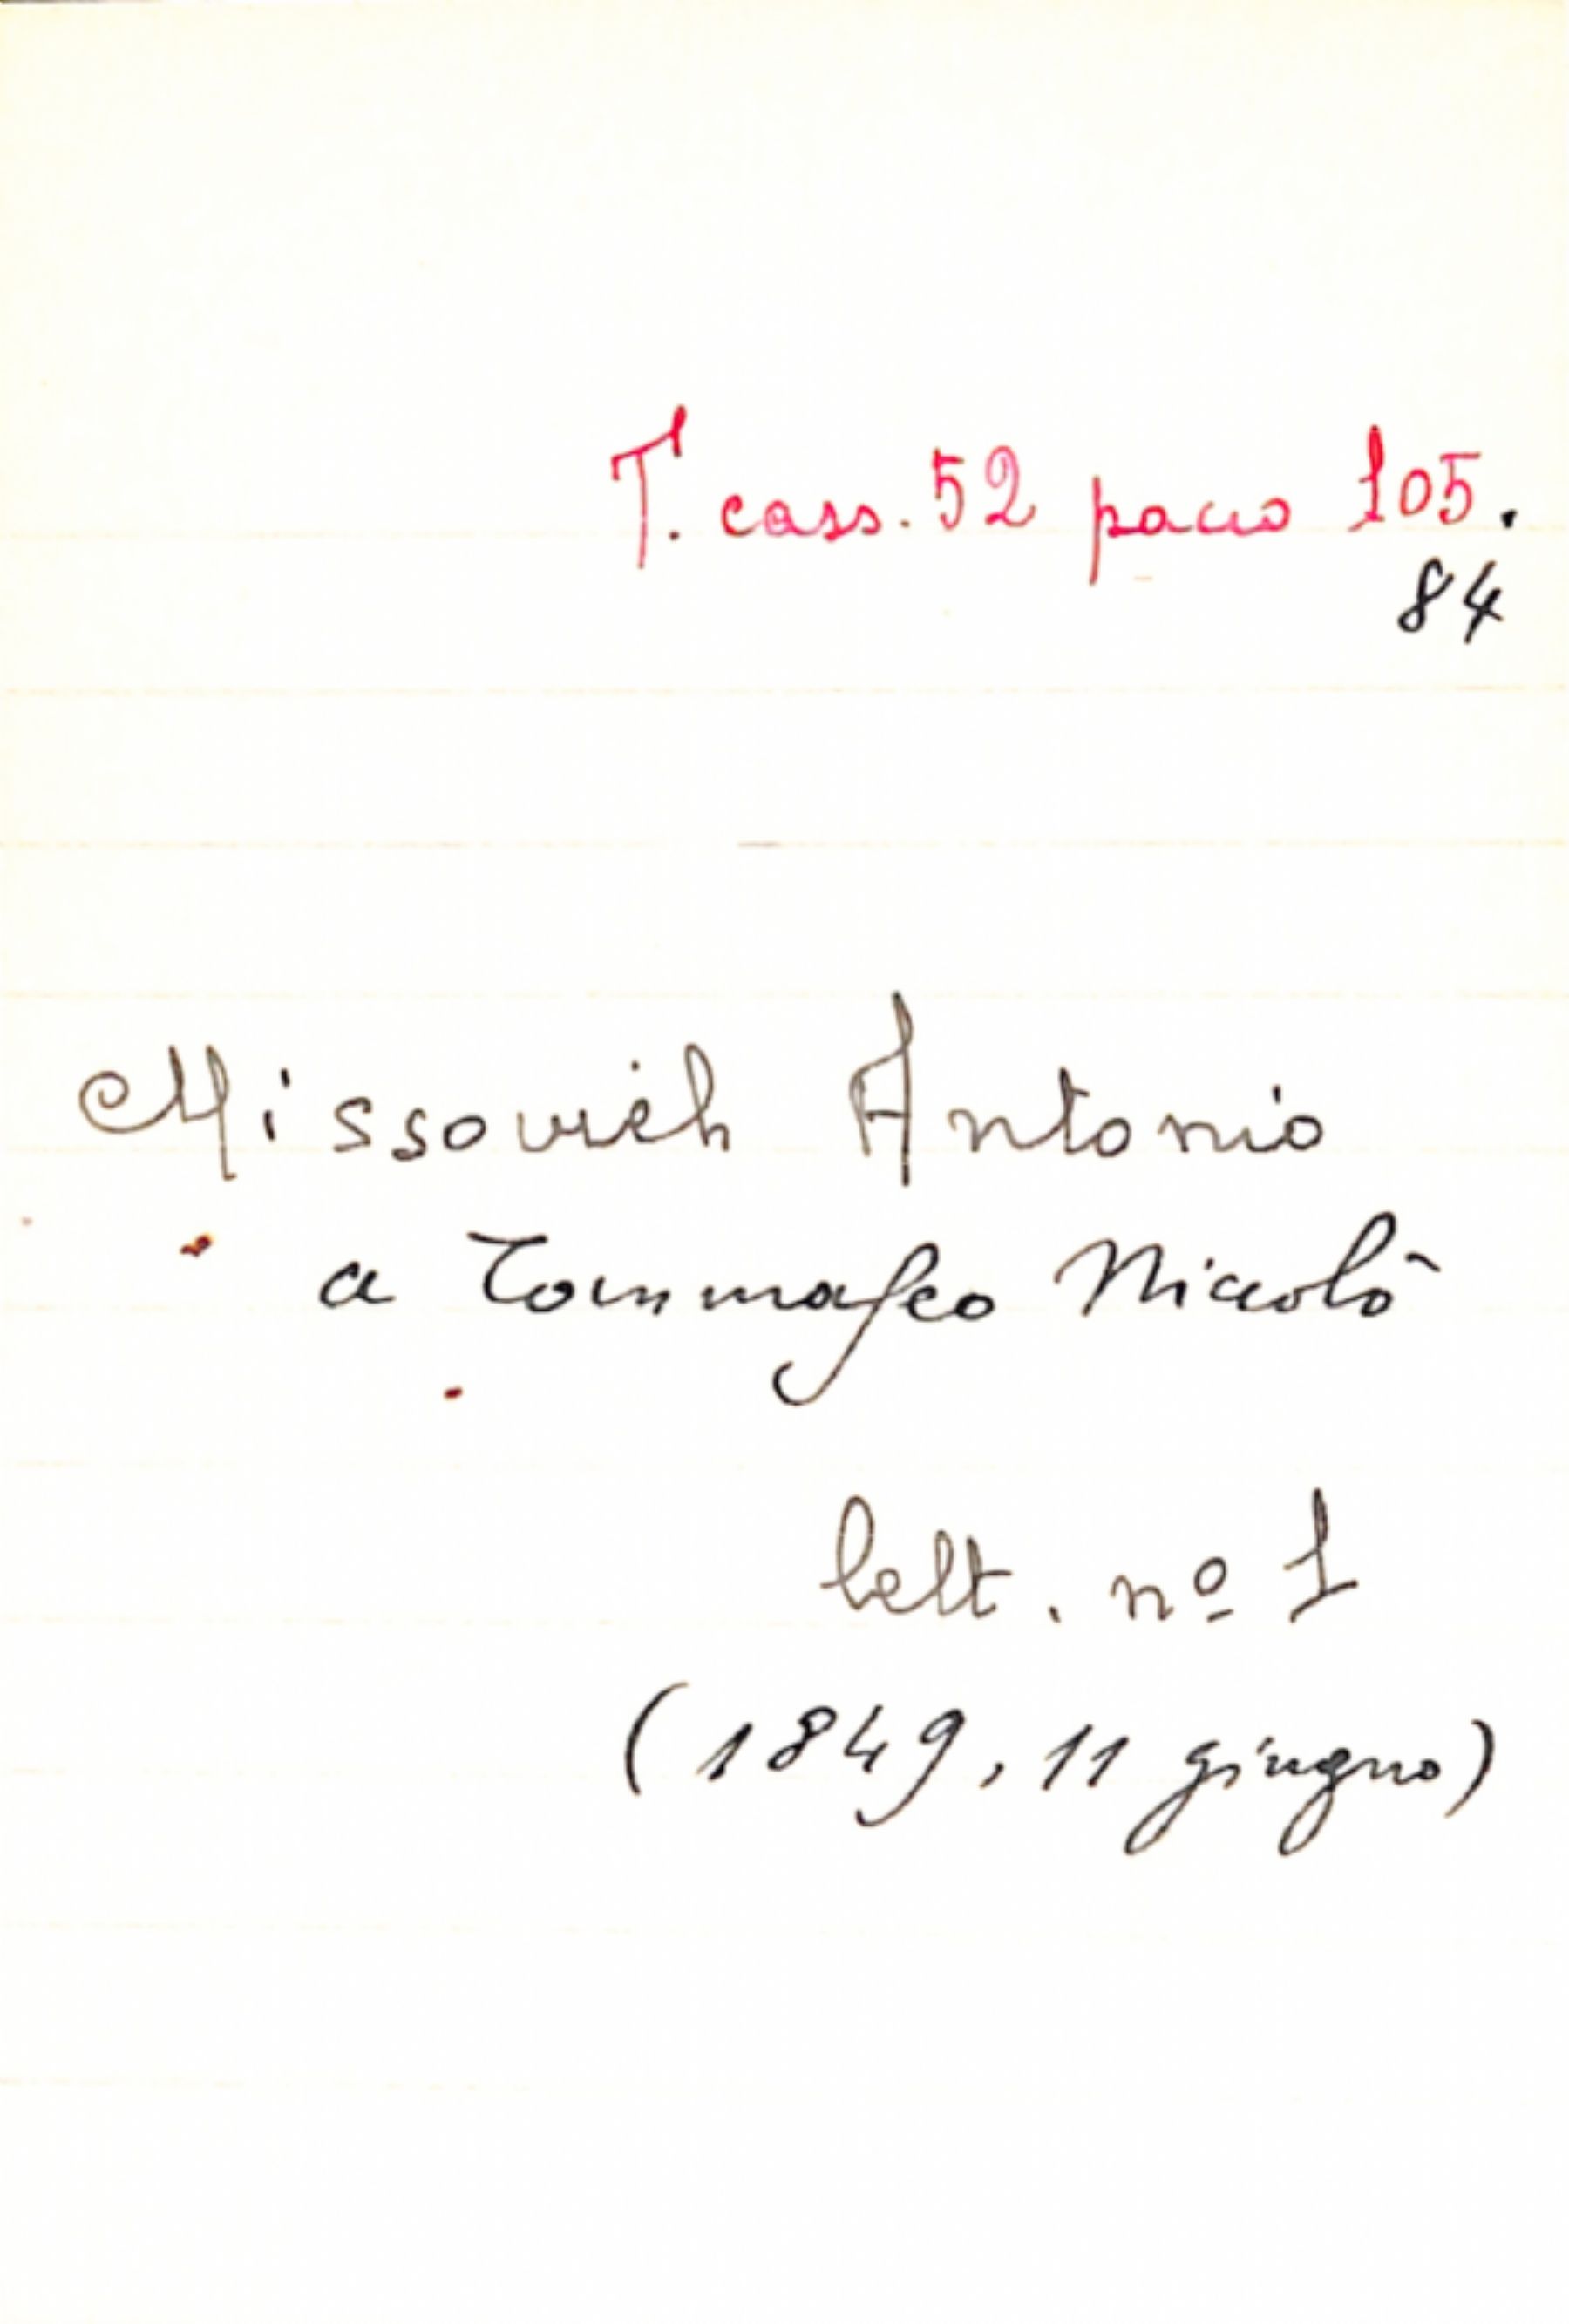 T. cass. 52 pacco 105.
84
Missovich Antonio
a Tommaseo Niccolò
lett. nº 1
(1849, 11 giugno)